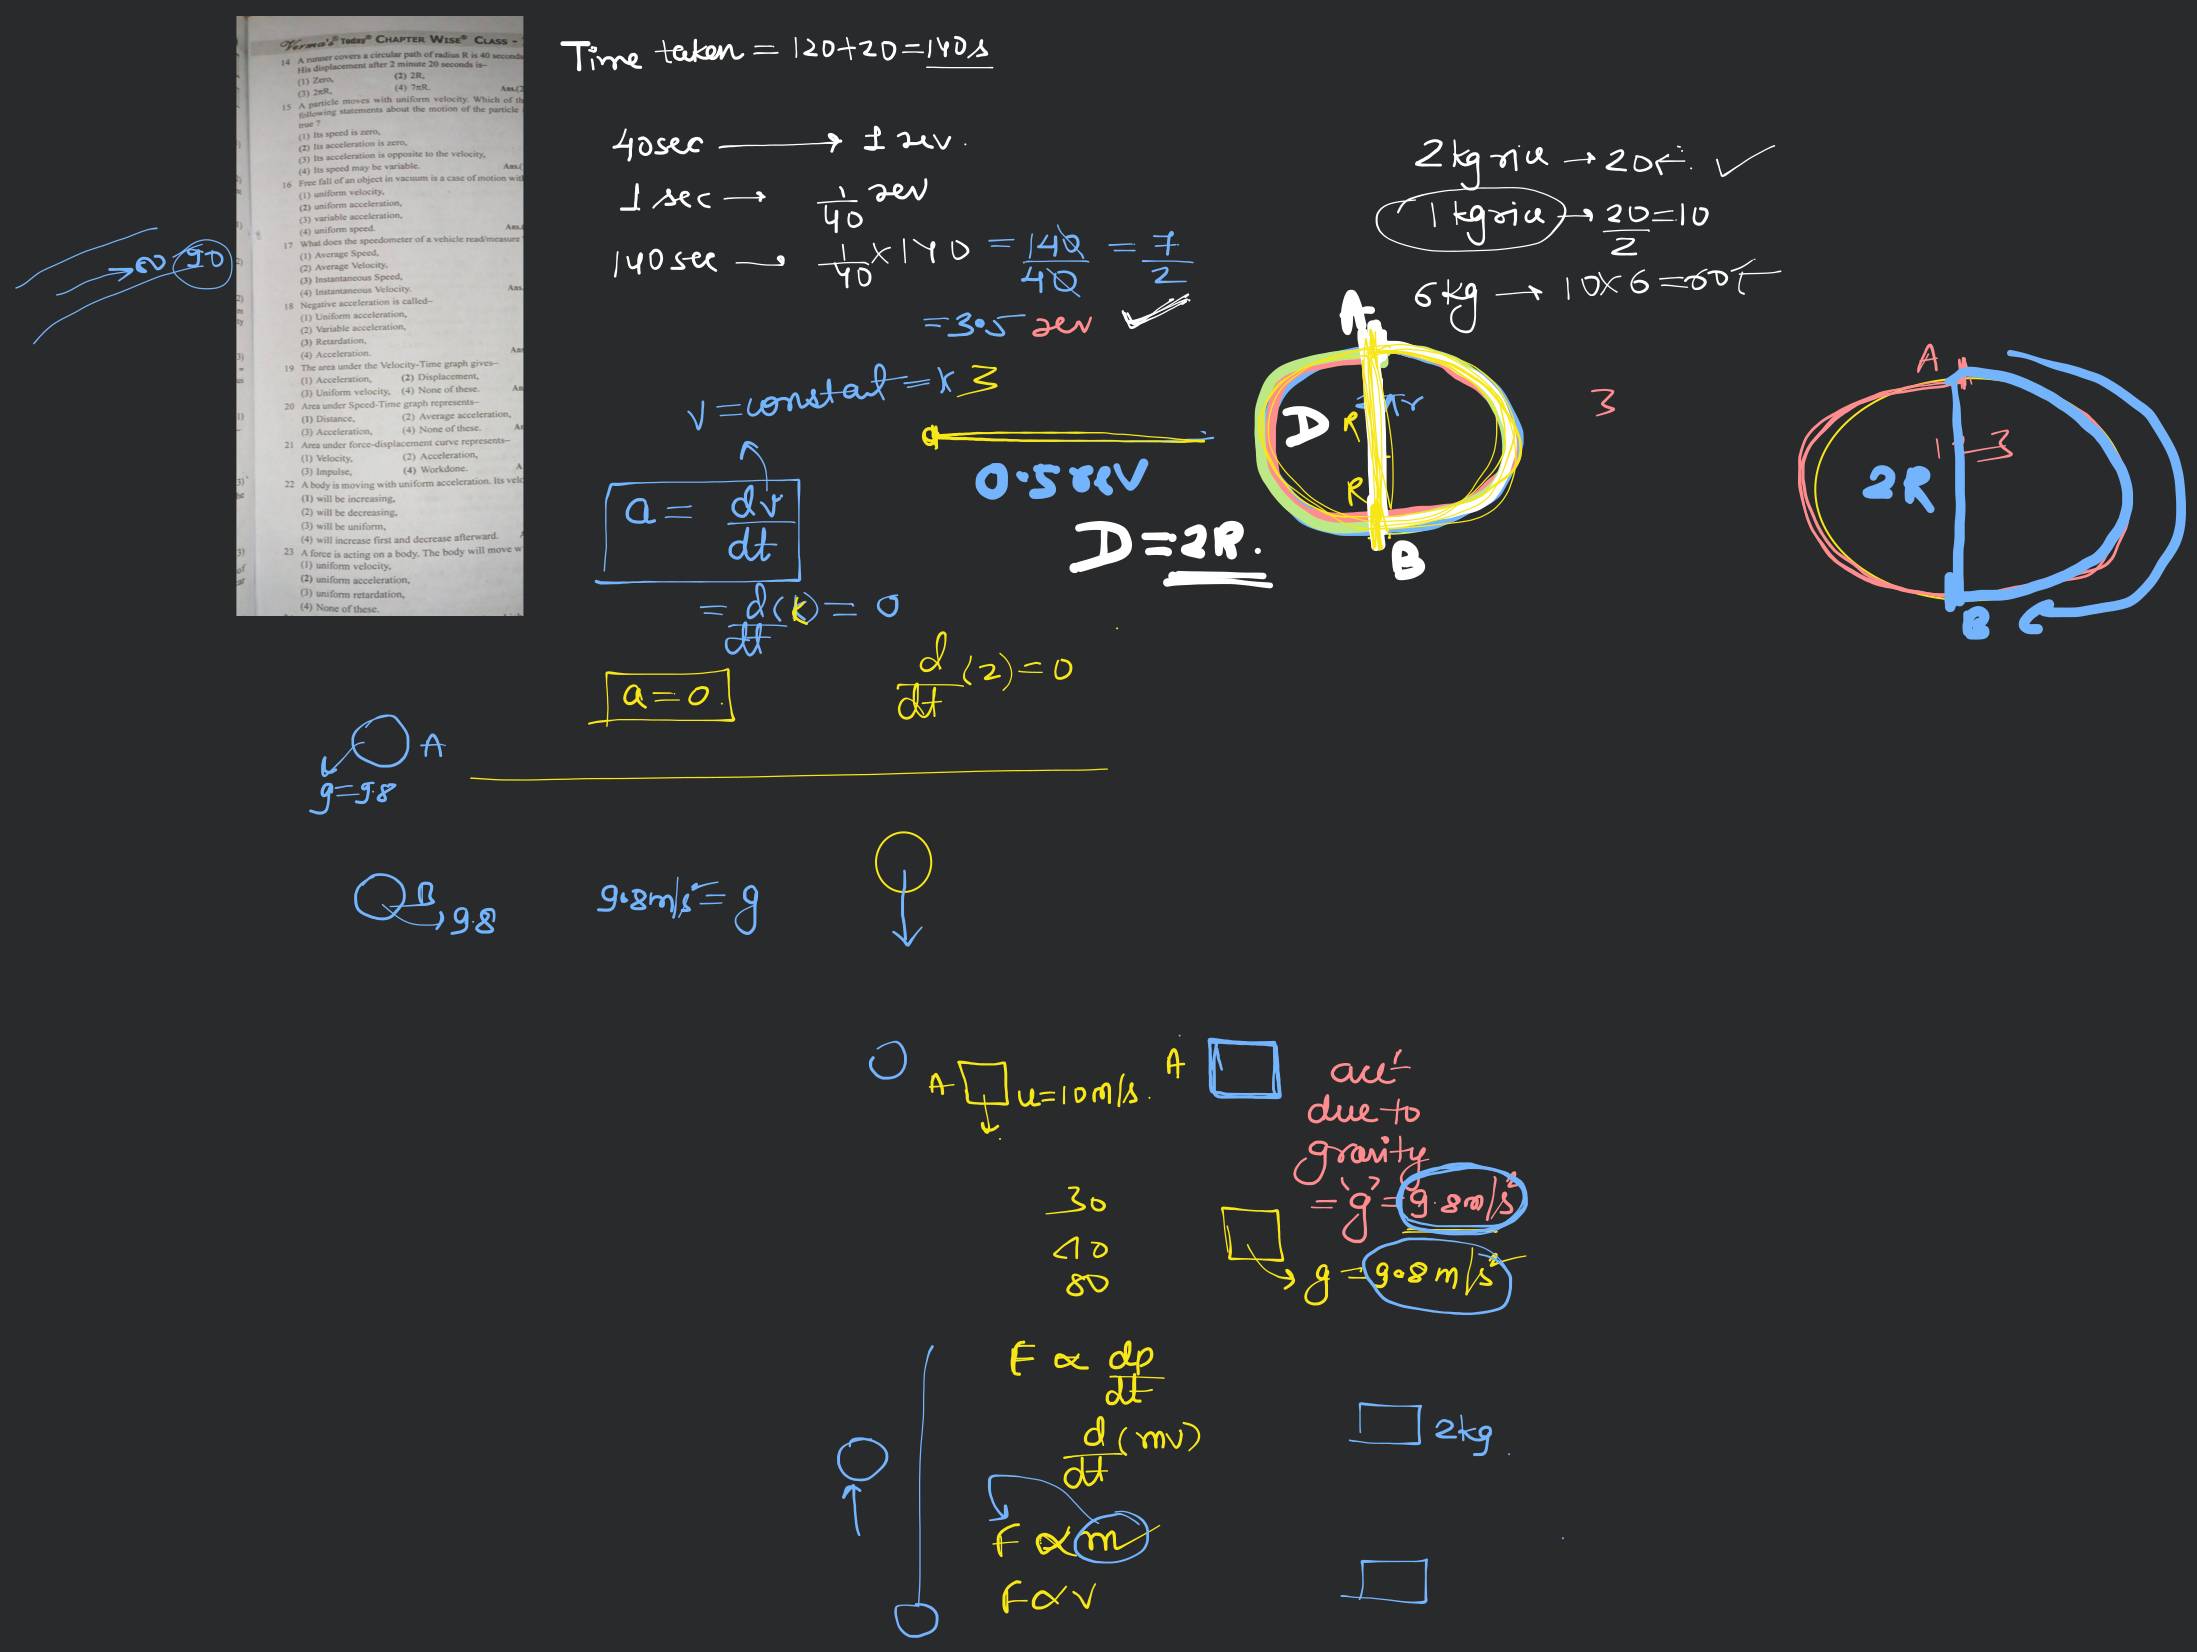 Verma's® Today® CHAPTER WISE® CLASS -
14 A runner covers a circular path of radius R is 40 seconds
His displacement after 2 minute 20 seconds is–
(1) Zero, (2) 2R,
(3) 2πR, (4) 7πR. Ans.(2
15 A particle moves with uniform velocity. Which of th
following statements about the motion of the particle
true ?
(1) Its speed is zero,
(2) Its acceleration is zero,
(3) Its acceleration is opposite to the velocity,
(4) Its speed may be variable. Ans.(
16 Free fall of an object in vacuum is a case of motion wit
(1) uniform velocity,
(2) uniform acceleration,
(3) variable acceleration,
(4) uniform speed. Ans.
17 What does the speedometer of a vehicle read/measure
(1) Average Speed,
(2) Average Velocity,
(3) Instantaneous Speed,
(4) Instantaneous Velocity. Ans.
18 Negative acceleration is called–
(1) Uniform acceleration,
(2) Variable acceleration,
(3) Retardation,
(4) Acceleration. An
19 The area under the Velocity-Time graph gives–
(1) Acceleration, (2) Displacement,
(3) Uniform velocity, (4) None of these. An
20 Area under Speed-Time graph represents–
(1) Distance, (2) Average acceleration,
(3) Acceleration, (4) None of these. A
21 Area under force-displacement curve represents–
(1) Velocity, (2) Acceleration,
(3) Impulse, (4) Workdone. A
22 A body is moving with uniform acceleration. Its velo
(1) will be increasing,
(2) will be decreasing,
(3) will be uniform,
(4) will increase first and decrease afterward.
23 A force is acting on a body. The body will move w
(1) uniform velocity,
(2) uniform acceleration,
(3) uniform retardation,
(4) None of these.
Time taken = 120+20=140s
40sec → 1 rev.
1 sec → 1/40 rev
140 sec → 1/40 × 140 = 140/40 = 7/2
= 3.5 rev
2kg rice → 20
1kg rice → 20/2 = 10
6kg → 10×6=60
90
v = constat = k 3
0.5 rev
D = 2R.
A
D
R
R
B
3
A
2R
B
a = dv/dt
= d/dt (k) = 0
a = 0.
d/dt (2) = 0
A
g=9.8
B
9.8
9.8m/s² = g
A u=10m/s.
A
accⁿ
due to
gravity
= 'g' = 9.8m/s²
g = 9.8m/s²
30
40
80
F ∝ dp/dt
d/dt (mv)
F ∝ m
F ∝ v
2kg